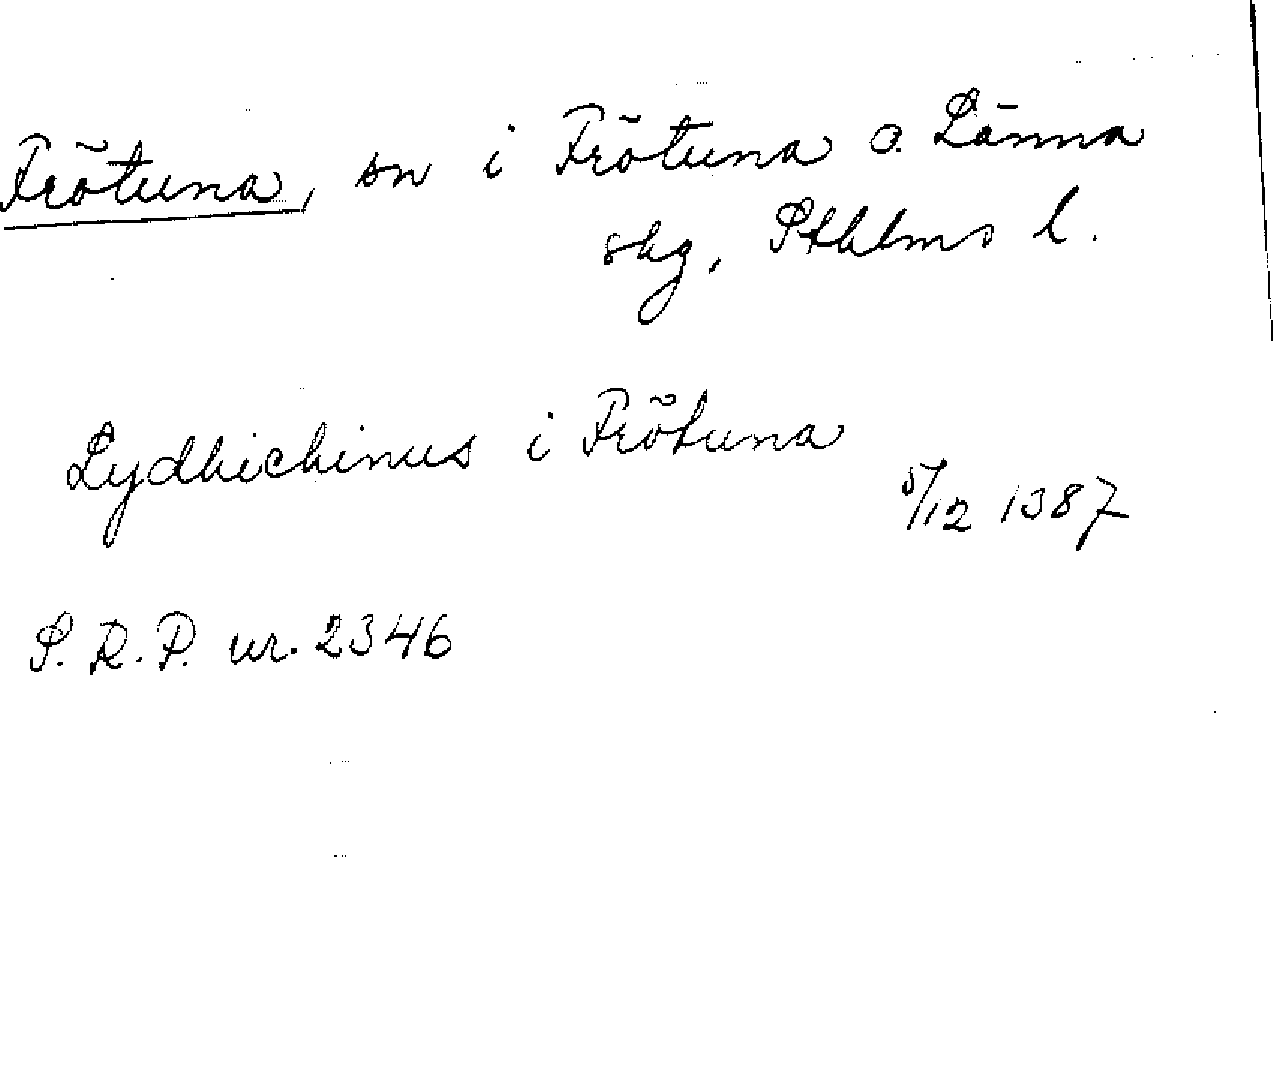 Frötuna, sn i Frötuna o. Länna
skg, Sthlms l.
Lydhichinus i Frötuna
5/12 1387
S. R. P. nr. 2346